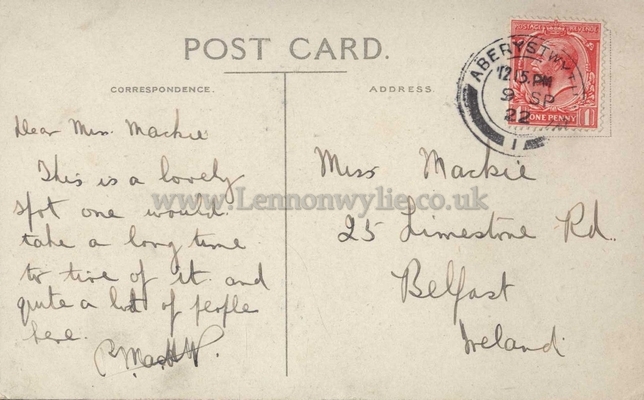 POST CARD.
CORRESPONDENCE.
ADDRESS.
POSTAGE REVENUE
ONE PENNY
1
ABERYSTWY
12 15 PM
9 SP
22
1
Dear Miss. Mackie
This is a lovely
spot one would
take a long time
to tire of it and
quite a lot of people
here.
Miss Mackie
25 Limestone Rd.
Belfast
Ireland.
www.Lennonwylie.co.uk